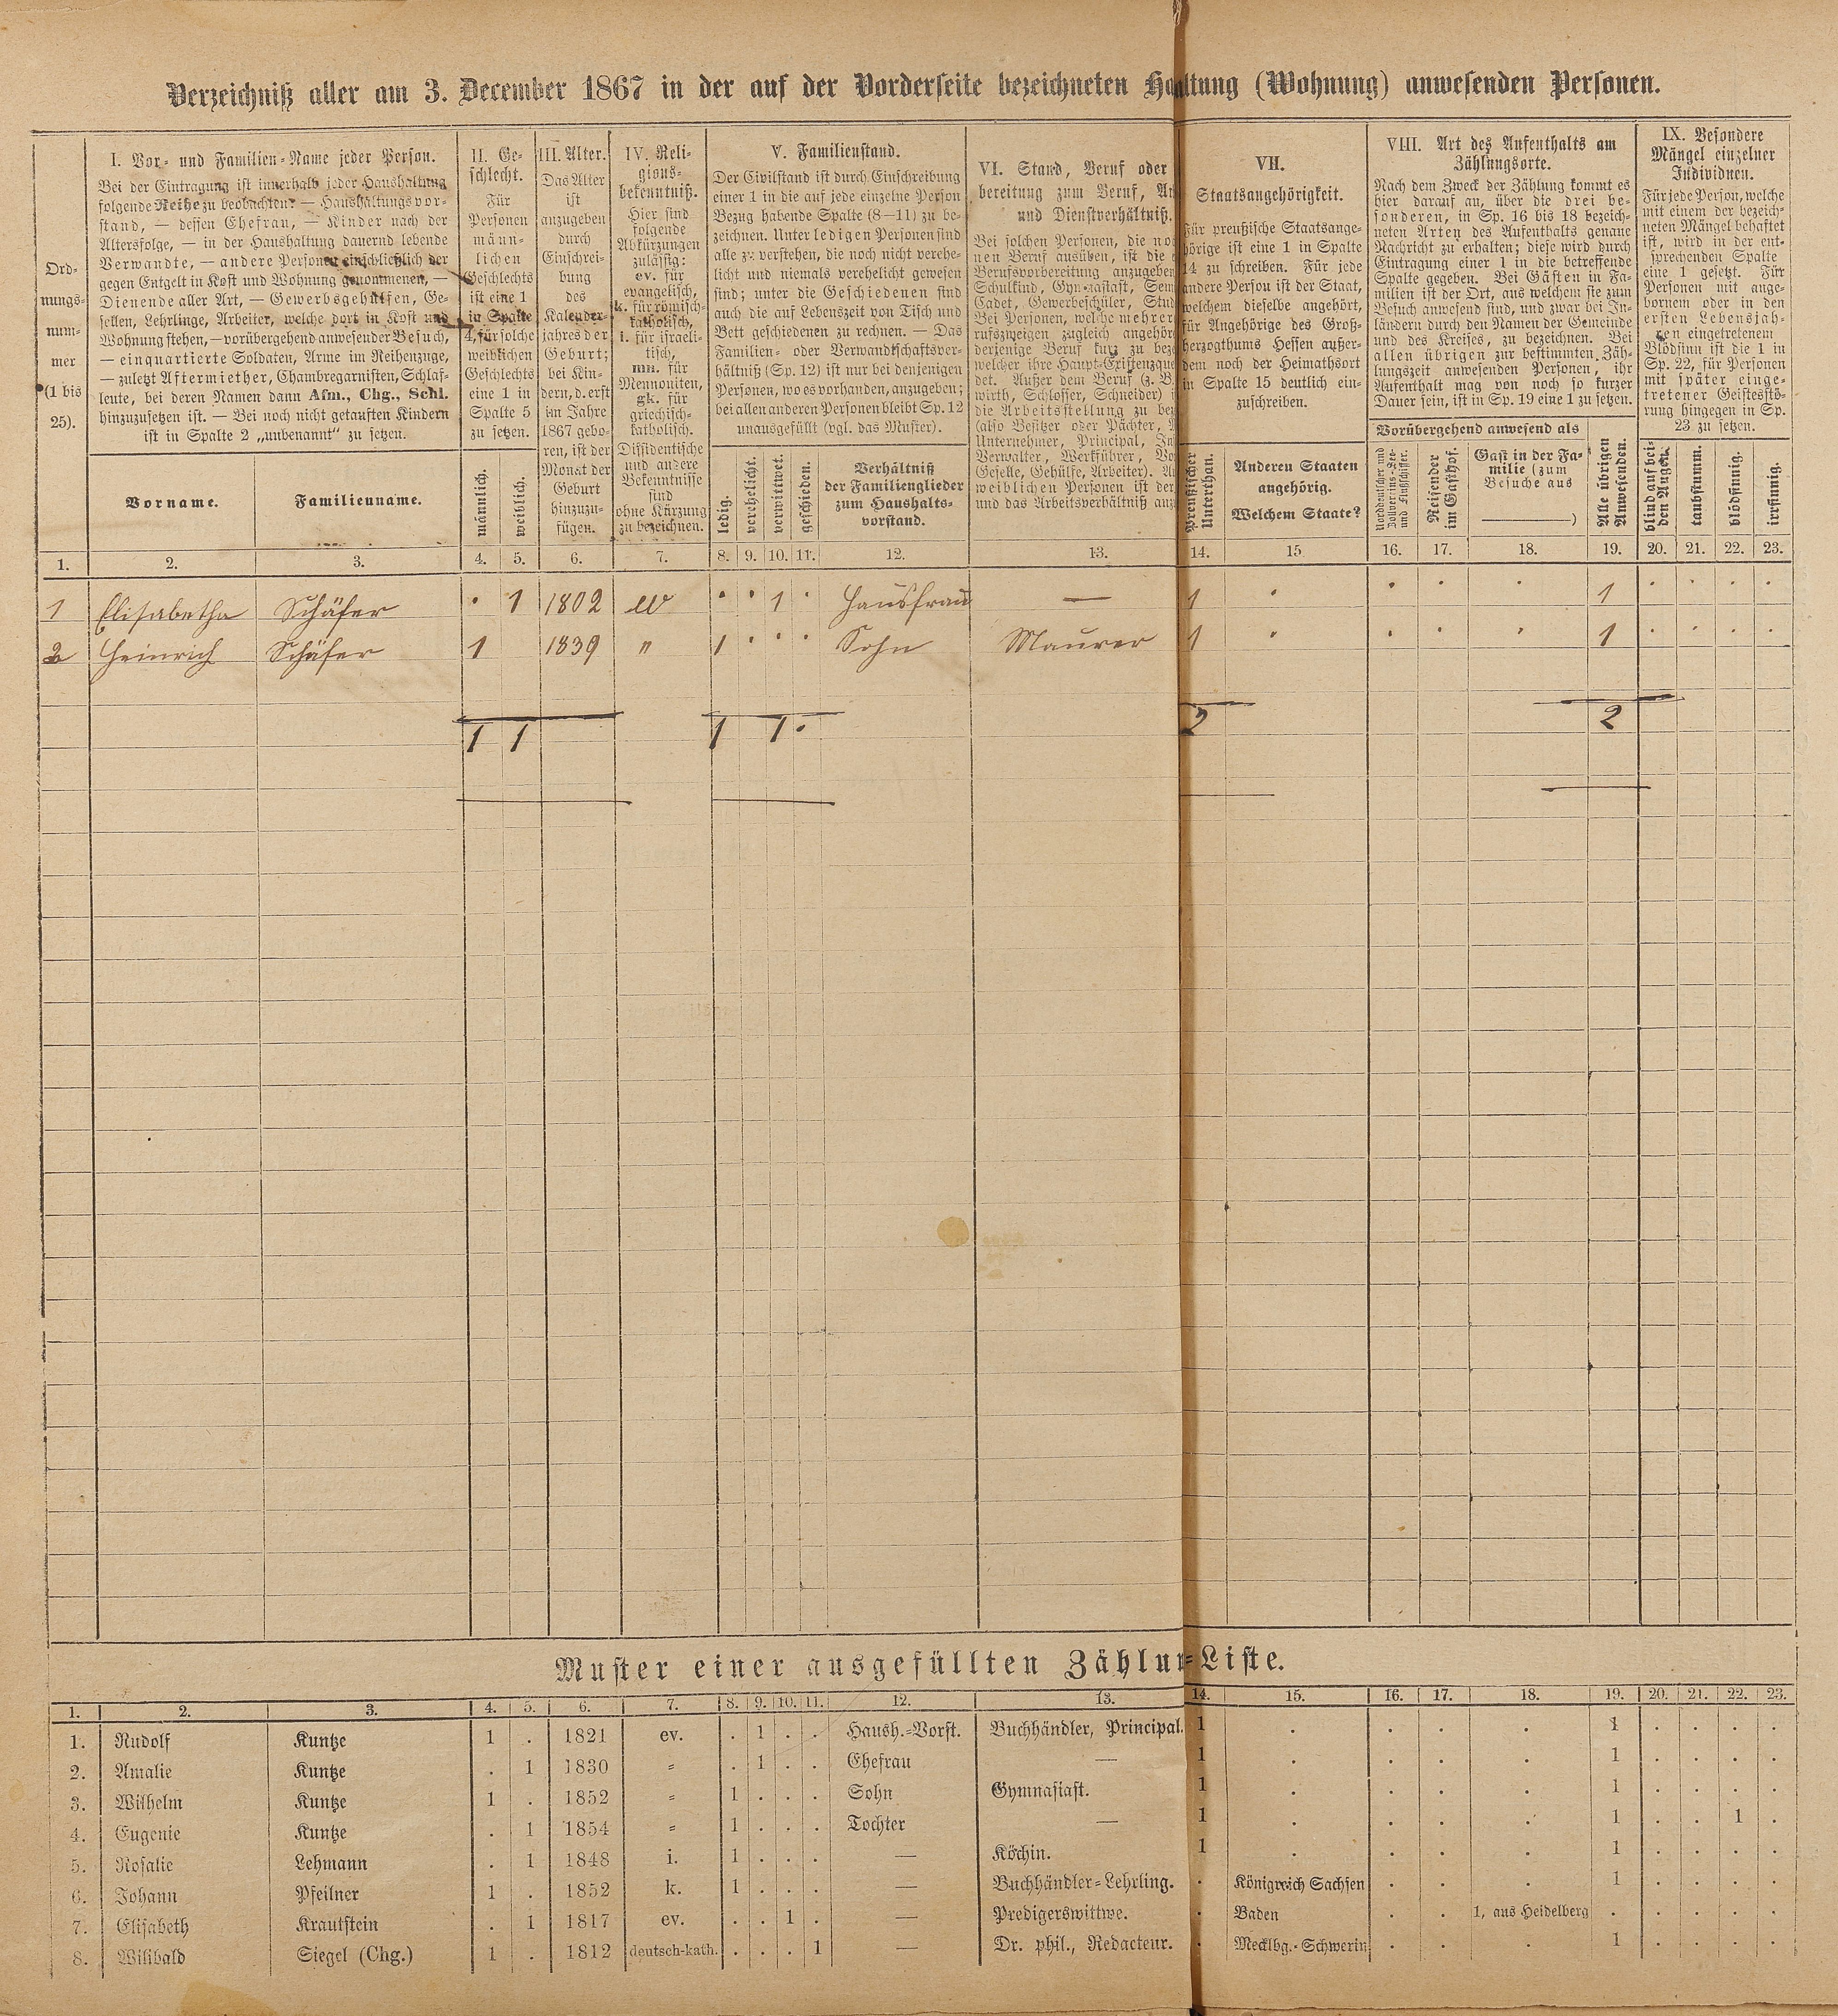 Verzeichniß aller am 3. December 1867 in der auf der Vorderseite bezeichneten Haltung (Wohnung) anwesenden Personen.
Ord-
nungs-
num-
mer
(1 bis
25).
I. Vor- und Familien-Name jeder Person.
Bei der Eintragung ist innerhalb jeder Haushaltung
folgende Reihe zu beobachten: — Haushaltungsvor-
stand, — dessen Ehefrau, — Kinder nach der
Altersfolge, — in der Haushaltung dauernd lebende
Verwandte, — andere Personen einschließlich der
gegen Entgelt in Kost und Wohnung genommenen, —
Dienende aller Art, — Gewerbsgehülfen, Ge-
sellen, Lehrlinge, Arbeiter, welche dort in Kost und
Wohnung stehen, — vorübergehend anwesender Besuch,
— einquartierte Soldaten, Arme im Reihenzuge,
— zuletzt Aftermiether, Chambregarnisten, Schlaf-
leute, bei deren Namen dann Afm., Chg., Schl.
hinzuzusetzen ist. — Bei noch nicht getauften Kindern
ist in Spalte 2 „unbenannt“ zu setzen.
Vorname.
Familienname.
II. Ge-
schlecht.
Für
Personen
männ-
lichen
Geschlechts
ist eine 1
in Spalte
4, für solche
weiblichen
Geschlechts
eine 1 in
Spalte 5
zu setzen.
männlich.
weiblich.
III. Alter.
Das Alter
ist
anzugeben
durch
Einschrei-
bung
des
Kalender-
jahres der
Geburt;
bei Kin-
dern, d. erst
im Jahre
1867 gebo-
ren, ist der
Monat der
Geburt
hinzuzu-
fügen.
IV. Reli-
gions-
bekenntniß.
Hier sind
folgende
Abkürzungen
zulässig:
ev. für
evangelisch,
k. für römisch-
katholisch,
i. für israeli-
tisch,
mn. für
Mennoniten,
gk. für
griechisch-
katholisch.
Dissidentische
und andere
Bekenntnisse
sind
ohne Kürzung
zu bezeichnen.
V. Familienstand.
Der Civilstand ist durch Einschreibung
einer 1 in die auf jede einzelne Person
Bezug habende Spalte (8—11) zu be-
zeichnen. Unter ledigen Personen sind
alle zu verstehen, die noch nicht verehe-
licht und niemals verehelicht gewesen
sind; unter die Geschiedenen sind
auch die auf Lebenszeit von Tisch und
Bett geschiedenen zu rechnen. — Das
Familien- oder Verwandtschaftsver-
hältniß (Sp. 12) ist nur bei denjenigen
Personen, wo es vorhanden, anzugeben;
bei allen anderen Personen bleibt Sp. 12
unausgefüllt (vgl. das Muster).
ledig.
verehelicht.
verwittwet.
geschieden.
Verhältniß
der Familienglieder
zum Haushalts-
vorstand.
VI. Stand, Beruf oder
bereitung zum Beruf,
und Dienstverhältniß.
Bei solchen Personen, die
nen Beruf ausüben, ist die
Berufsvorbereitung anzugeben
Schulkind, Gymnasiast,
Cadet, Gewerbeschüler,
Bei Personen, welche
rufszweigen zugleich
derjenige Beruf kurz zu
welcher ihre
det. Außer dem Beruf (z. B.
wirth, Schlosser, Schneider)
die Arbeitsstellung zu
(also Besitzer oder Pächter,
Unternehmer, Principal,
Verwalter, Werkführer,
Geselle, Gehülfe, Arbeiter).
weiblichen Personen ist der
und das Arbeitsverhältniß
VII.
Staatsangehörigkeit.
Für preußische Staatsange-
hörige ist eine 1 in Spalte
14 zu schreiben. Für jede
andere Person ist der Staat,
welchem dieselbe angehört,
für Angehörige des Groß-
herzogthums Hessen außer-
dem noch der Heimathsort
in Spalte 15 deutlich ein-
zuschreiben.
Preußischer
Unterthan.
Anderen Staaten
angehörig.
Welchem Staate?
VIII. Art des Aufenthalts am
Zählungsorte.
Nach dem Zweck der Zählung kommt es
hier darauf an, über die drei be-
sonderen, in Sp. 16 bis 18 bezeich-
neten Arten des Aufenthalts genaue
Nachricht zu erhalten; diese wird durch
Eintragung einer 1 in die betreffende
Spalte gegeben. Bei Gästen in Fa-
milien ist der Ort, aus welchem sie zum
Besuch anwesend sind, und zwar bei In-
ländern durch den Namen der Gemeinde
und des Kreises, zu bezeichnen. Bei
allen übrigen zur bestimmten Zäh-
lungszeit anwesenden Personen, ihr
Aufenthalt mag von noch so kurzer
Dauer sein, ist in Sp. 19 eine 1 zu setzen.
Vorübergehend anwesend als
Norddeutscher und
Zollvereins-See-
und Flußschiffer.
Reisender
im Gasthof.
Gast in der Fa-
milie (zum
Besuche aus
)
Alle übrigen
Anwesenden.
IX. Besondere
Mängel einzelner
Individuen.
Für jede Person, welche
mit einem der bezeich-
neten Mängel behaftet
ist, wird in der ent-
sprechenden Spalte
eine 1 gesetzt. Für
Personen mit ange-
bornem oder in den
ersten Lebensjah-
ren eingetretenem
Blödsinn ist die 1 in
Sp. 22, für Personen
mit später einge-
tretener Geistesstö-
rung hingegen in Sp.
23 zu setzen.
blind auf bei-
den Augen.
taubstumm.
blödsinnig.
irrsinnig.
1. 2. 3. 4. 5. 6. 7. 8. 9. 10. 11. 12. 13. 14. 15 16. 17. 18. 19. 20. 21. 22. 23.
1 Elisabetha Schäfer . 1 1802 ev . . 1 . Hausfrau — 1 . . . . 1 . . . .
2 Heinrich Schäfer 1 1839 " 1 . . . Sohn Maurer 1 . . . . 1 . . . .
1 1 1 1 . 2 2
Muster einer ausgefüllten Zählun-Liste.
1. 2. 3. 4. 5. 6. 7. 8. 9. 10. 11. 12. 13. 14. 15. 16. 17. 18. 19. 20. 21. 22. 23.
1. Rudolf Kuntze 1 . 1821 ev. . 1 . . Haush.-Vorst. Buchhändler, Principal. 1 . . . . 1 . . . .
2. Amalie Kuntze . 1 1830 = . 1 . . Ehefrau — 1 . . . . 1 . . . .
3. Wilhelm Kuntze 1 . 1852 = 1 . . . Sohn Gymnasiast. 1 . . . . 1 . . . .
4. Eugenie Kuntze . 1 1854 = 1 . . . Tochter — 1 . . . . 1 . . 1 .
5. Rosalie Lehmann . 1 1848 i. 1 . . . — Köchin. 1 . . . . 1 . . . .
6. Johann Pfeilner 1 . 1852 k. 1 . . . — Buchhändler-Lehrling. . Königreich Sachsen . . . 1 . . . .
7. Elisabeth Krautstein . 1 1817 ev. . . 1 . — Predigerswittwe. . Baden . . 1, aus Heidelberg . . . . .
8. Wilibald Siegel (Chg.) 1 . 1812 deutsch-kath. . . . 1 — Dr. phil., Redacteur. . Mecklbg.-Schwerin . . . 1 . . . .